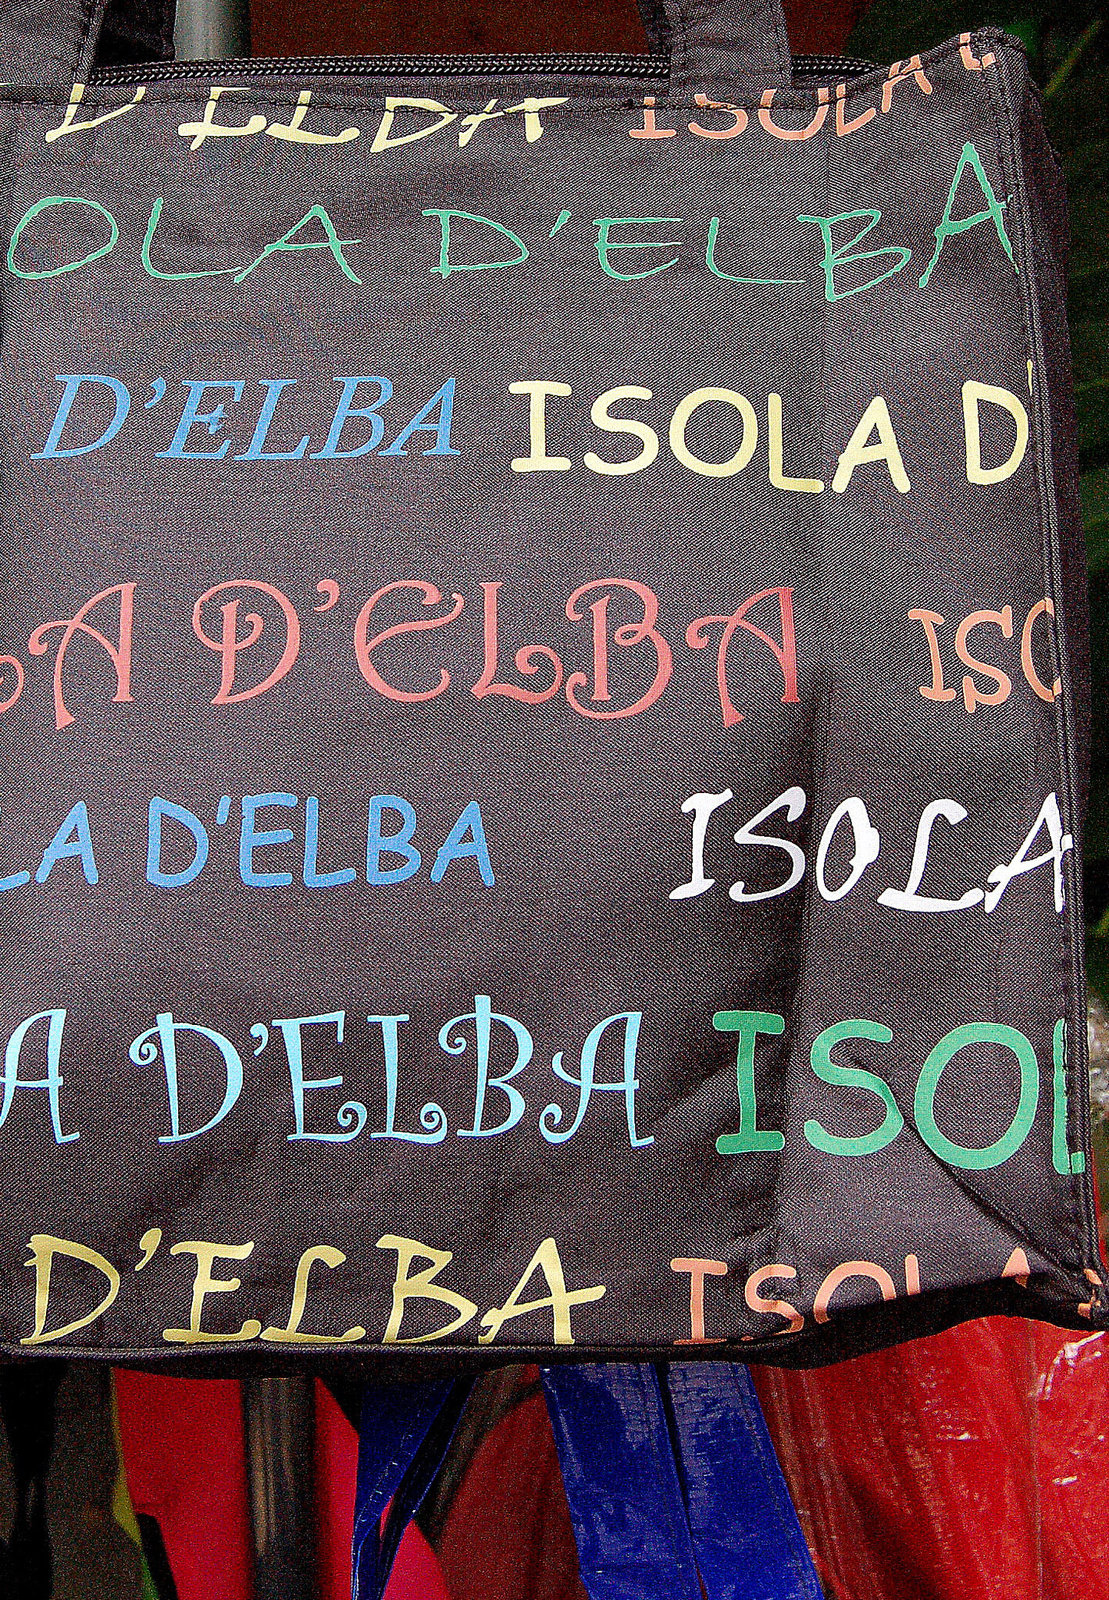 D'ELBA ISOLA
OLA D'ELBA
D'ELBA ISOLA D'
LA D'ELBA ISO
LA D'ELBA ISOLA
A D'ELBA ISOL
D'ELBA ISOLA